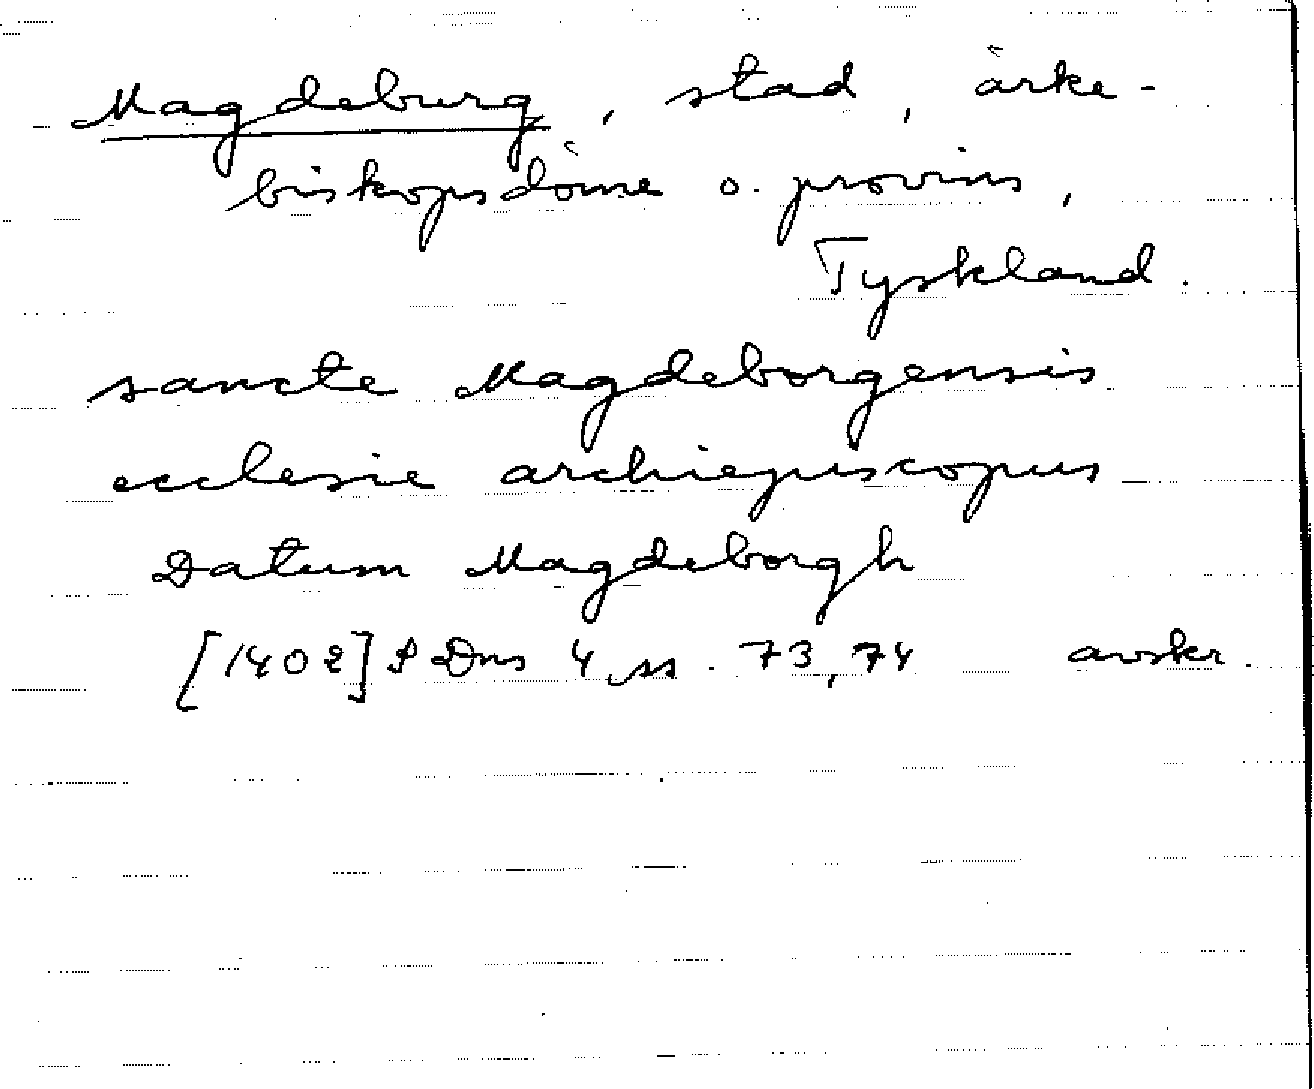 Magdeburg, stad, ärke-
biskopsdöme o. provins,
Tyskland.
sancte Magdeborgensis
ecclesie archiepiscopus
Datum Magdeborgh
[1402] SDns 4, ss. 73, 74 avskr.